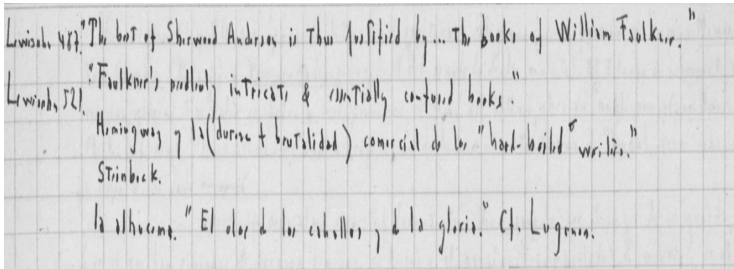 Lewisohn 487. "The best of Sherwood Anderson is thus justified by... the books of William Faulkner."
Lewisohn 521. "Faulkner's needlessly intricate & essentially confused books."
Hemingway y la (dureza + brutalidad) comercial de los "hard-boiled writers."
Steinbeck.
la alhucema. "El olor de los caballos y de la gloria." Cf. Lugones.